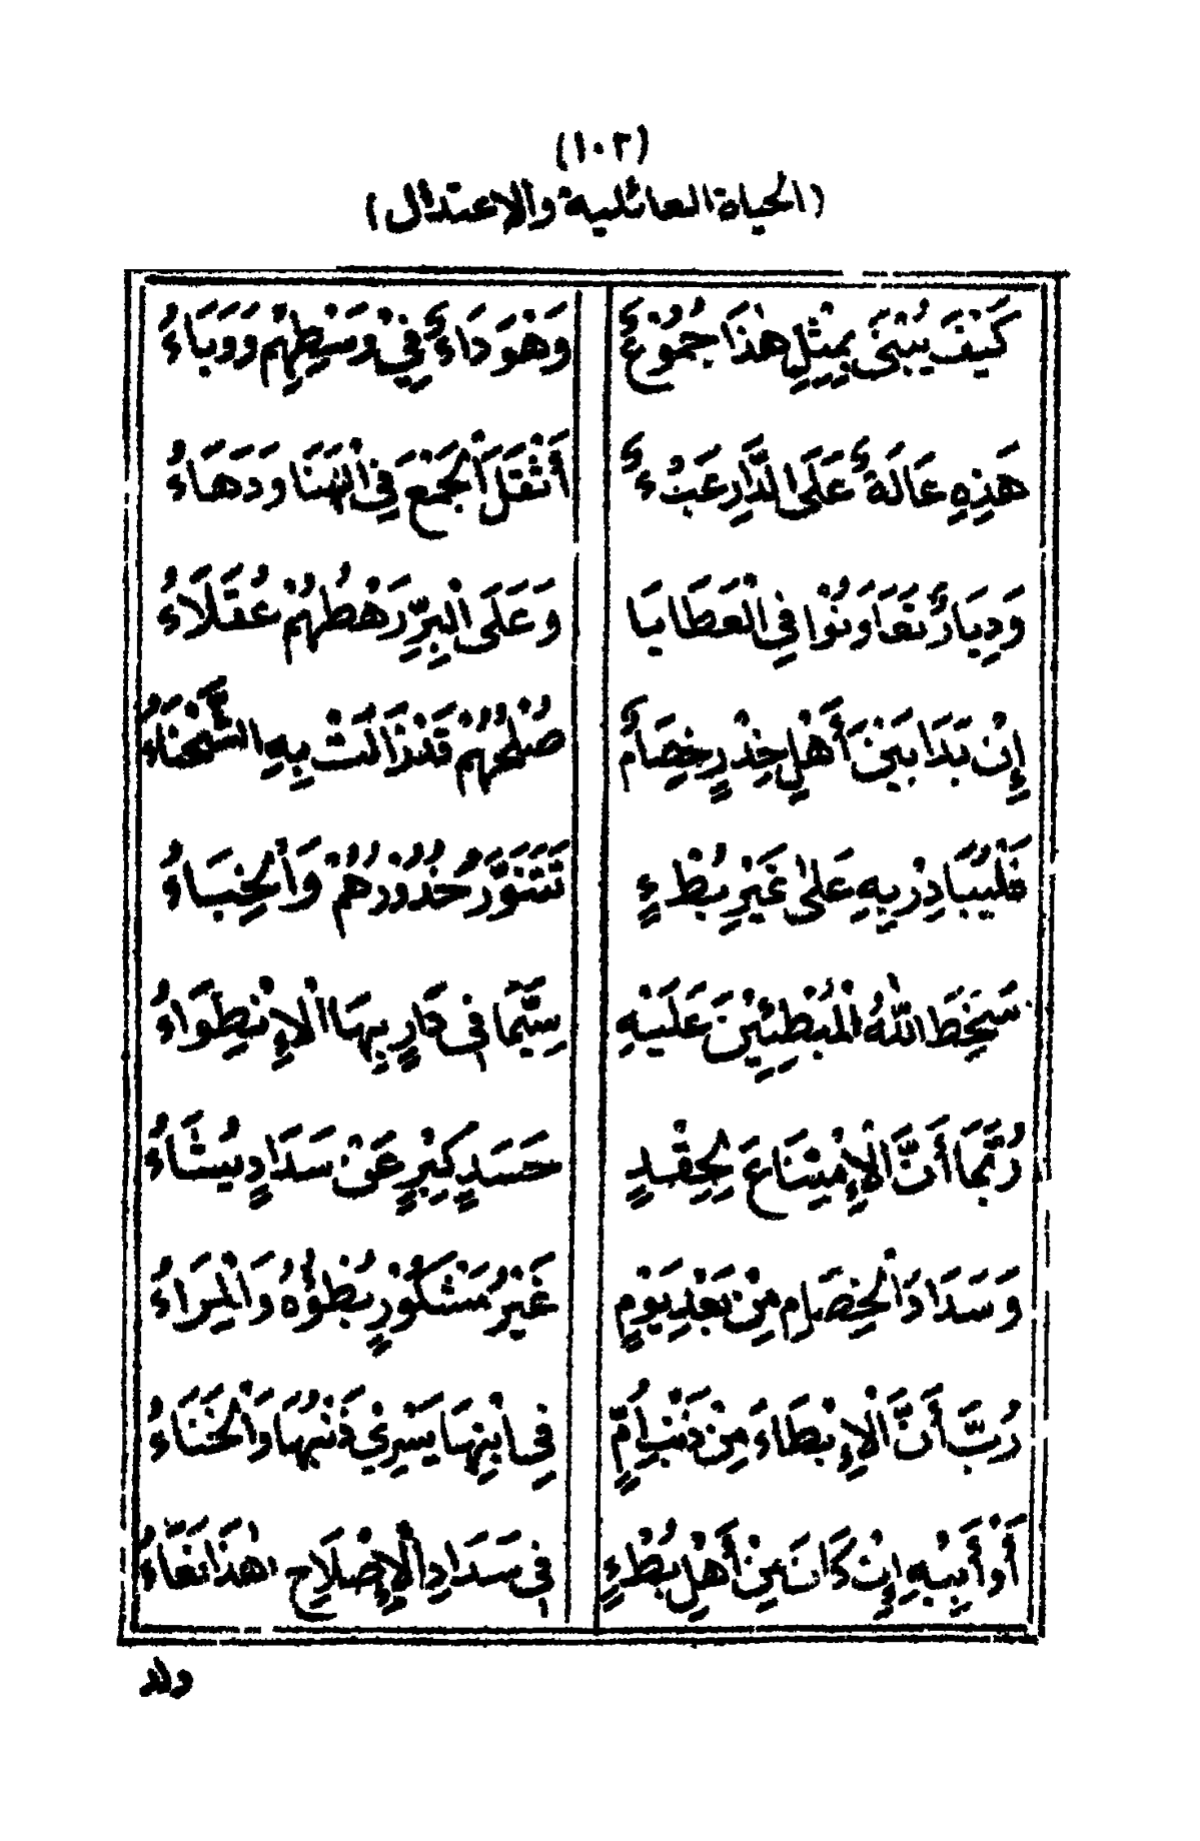 (١٠٣)
(الحياة العائلية والاعتدال)
كَيْفَ يُبْنَى بِمِثْلِ هٰذَا جُمُوْعٌ وَهْوَ دَاءٌ فِيْ وَسْطِهِمْ وَوَبَاءُ
هَذِهِ عَالَةٌ عَلَى الدَّارِ عَبْءٌ أَثْقَلَ الْجَمْعَ فِي الْهَنَا وَدَهَاءُ
وَدِيَارٌ تَعَاوَنُوْا فِي الْعَطَايَا وَعَلَى الْبِرِّ رَهْطُهُمْ عُقَلَاءُ
إِنْ بَدَا بَيْنَ أَهْلِ خِدْرٍ خِصَامٌ صُلْحُهُمْ قَدْ زَالَتْ بِهِ الشَّحْنَاءُ
فَلْيُبَادِرْ بِهِ عَلىٰ غَيْرِ بُطْءٍ تَتَنَوَّرْ خُدُوْرُهُمْ وَالْخِبَاءُ
سَخِطَ اللّٰهُ الْمُبْطِئِيْنَ عَلَيْهِ سِيَّمَا فِي دَارٍ بِهَا الْإِنْطِوَاءُ
رُبَّمَا أَنَّ الْإِمْتِنَاعَ لِحِقْدٍ حَسَدٍ كِبْرٍ عَنْ سَدَادٍ يُشَاءُ
وَسَدَادَ الْخِصَامِ مِنْ بَعْدِ يَوْمٍ غَيْرُ مَشْكُوْرٍ بُطْؤُهُ وَالْمِرَاءُ
رُبَّ أَنَّ الْإِبْطَاءَ مِنْ ذَنْبِ أُمٍّ فِي ابْنِهَا يَسْرِيْ ذَنْبُهَا وَالْخَنَاءُ
أَوْ أَبِيْهِ إِنْ كَانَ مِنْ أَهْلِ بُطْءٍ فِي سَدَادِ الْإِصْلَاحِ هٰذَا
ولد